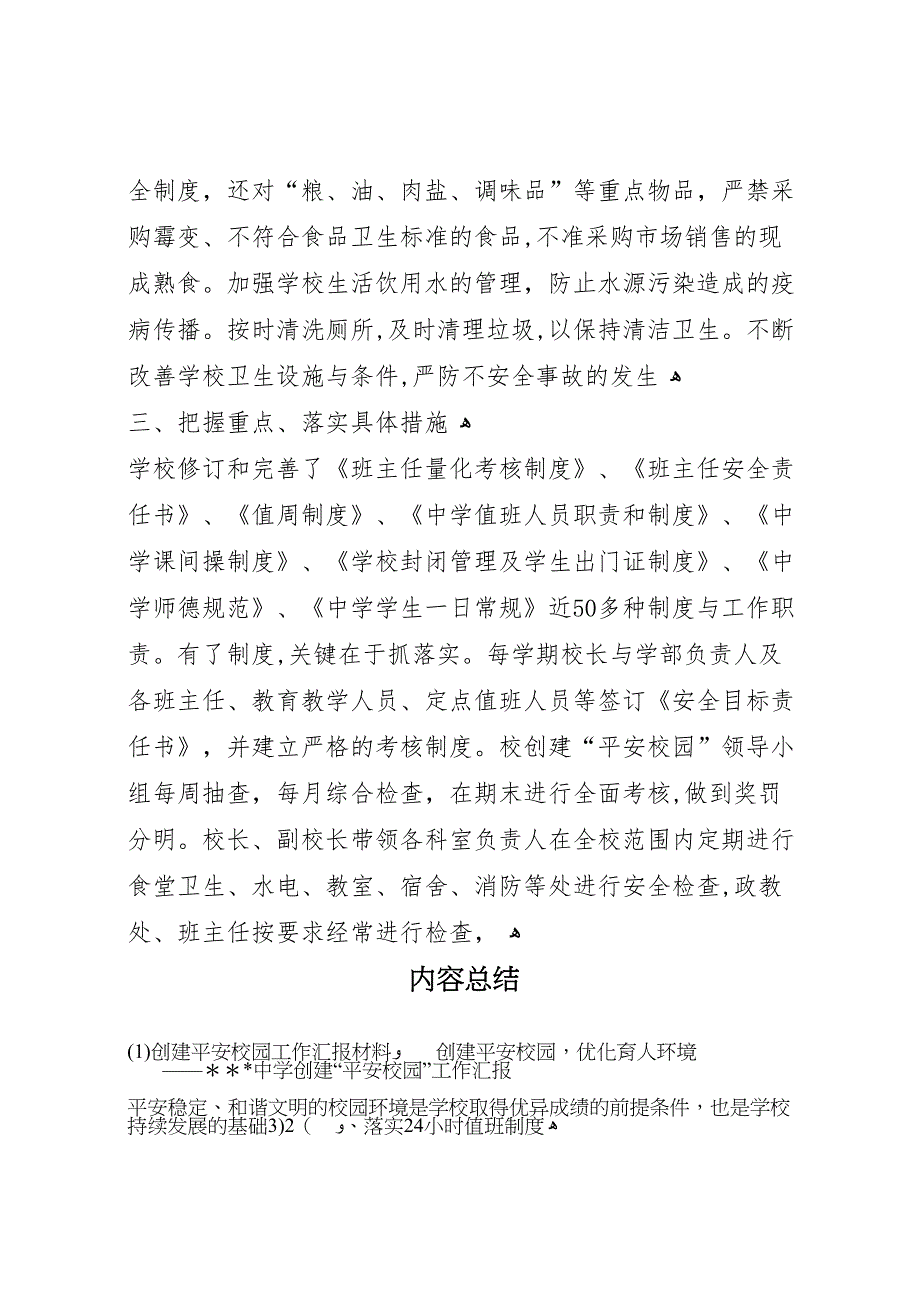 全制度，还对“粮、油、肉盐、调味品”等重点物品，严禁采
购霉变、不符合食品卫生标准的食品,不准采购市场销售的现
成熟食。加强学校生活饮用水的管理，防止水源污染造成的疫
病传播。按时清洗厕所,及时清理垃圾,以保持清洁卫生。不断
改善学校卫生设施与条件,严防不安全事故的发生 ﻫ
三、把握重点、落实具体措施 ﻫ
学校修订和完善了《班主任量化考核制度》、《班主任安全责
任书》、《值周制度》、《中学值班人员职责和制度》、《中
学课间操制度》、《学校封闭管理及学生出门证制度》、《中
学师德规范》、《中学学生一日常规》近50多种制度与工作职
责。有了制度,关键在于抓落实。每学期校长与学部负责人及
各班主任、教育教学人员、定点值班人员等签订《安全目标责
任书》，并建立严格的考核制度。校创建“平安校园”领导小
组每周抽查，每月综合检查，在期末进行全面考核,做到奖罚
分明。校长、副校长带领各科室负责人在全校范围内定期进行
食堂卫生、水电、教室、宿舍、消防等处进行安全检查,政教
处、班主任按要求经常进行检查， ﻫ
内容总结
(1)创建平安校园工作汇报材料و 创建平安校园，优化育人环境
——＊＊*中学创建“平安校园”工作汇报
平安稳定、和谐文明的校园环境是学校取得优异成绩的前提条件，也是学校
持续发展的基础3)2（ و、落实24小时值班制度ﻫ